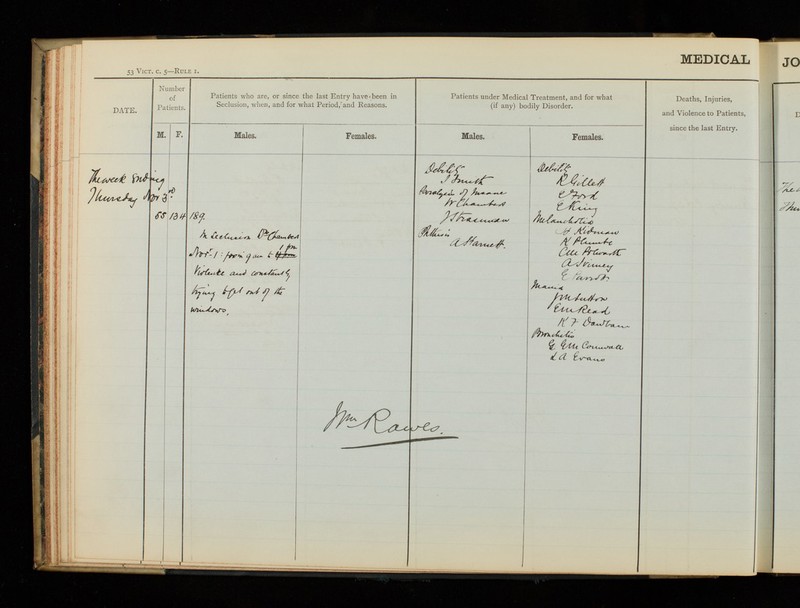 MEDICAL
JO
53 VICT. c. 5—RULE 1.
DATE.
Number
of
Patients.
M. F.
Patients who are, or since the last Entry have been in
Seclusion, when, and for what Period, and Reasons.
Males.
Females.
Patients under Medical Treatment, and for what
(if any) bodily Disorder.
Males.
Females.
Deaths, Injuries,
and Violence to Patients,
since the last Entry.
The week Ending
Thursday Nov 3rd
55 134 189.
In Seclusion Wm Chambers
Nov 1: from 9 am to 1 pm
Violence and constantly
trying to get out of the
windows.
Debility
J Smith
Paralysis of Insane
W Chambers
J Strachan
Phthisis
A Starnett.
Debility
R Gillett
E Ford
E King
Melancholia
H Kidman
K Plumbe
A Tourney
Mania
J M Sutton
E M Read
K F
Bronchitis
G E M Cornwall
L A Evans
Wm Rawes.